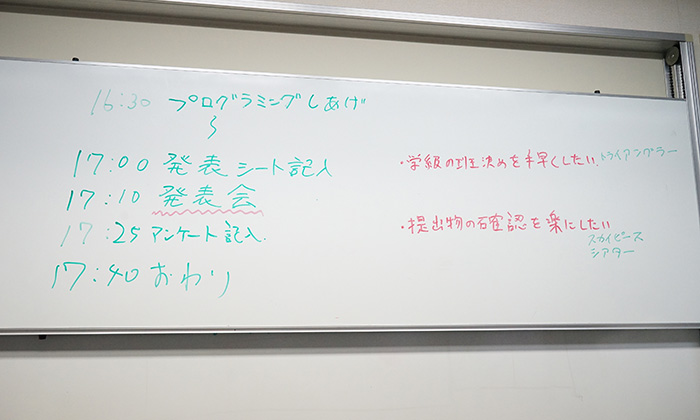 16:30 プログラミングしあげ
17:00 発表シート記入
17:10 発表会
17:25 アンケート記入
17:40 おわり
・学級の班決めを手早くしたい トライアングラー
・提出物の確認を楽にしたい
スカイピース
シアター